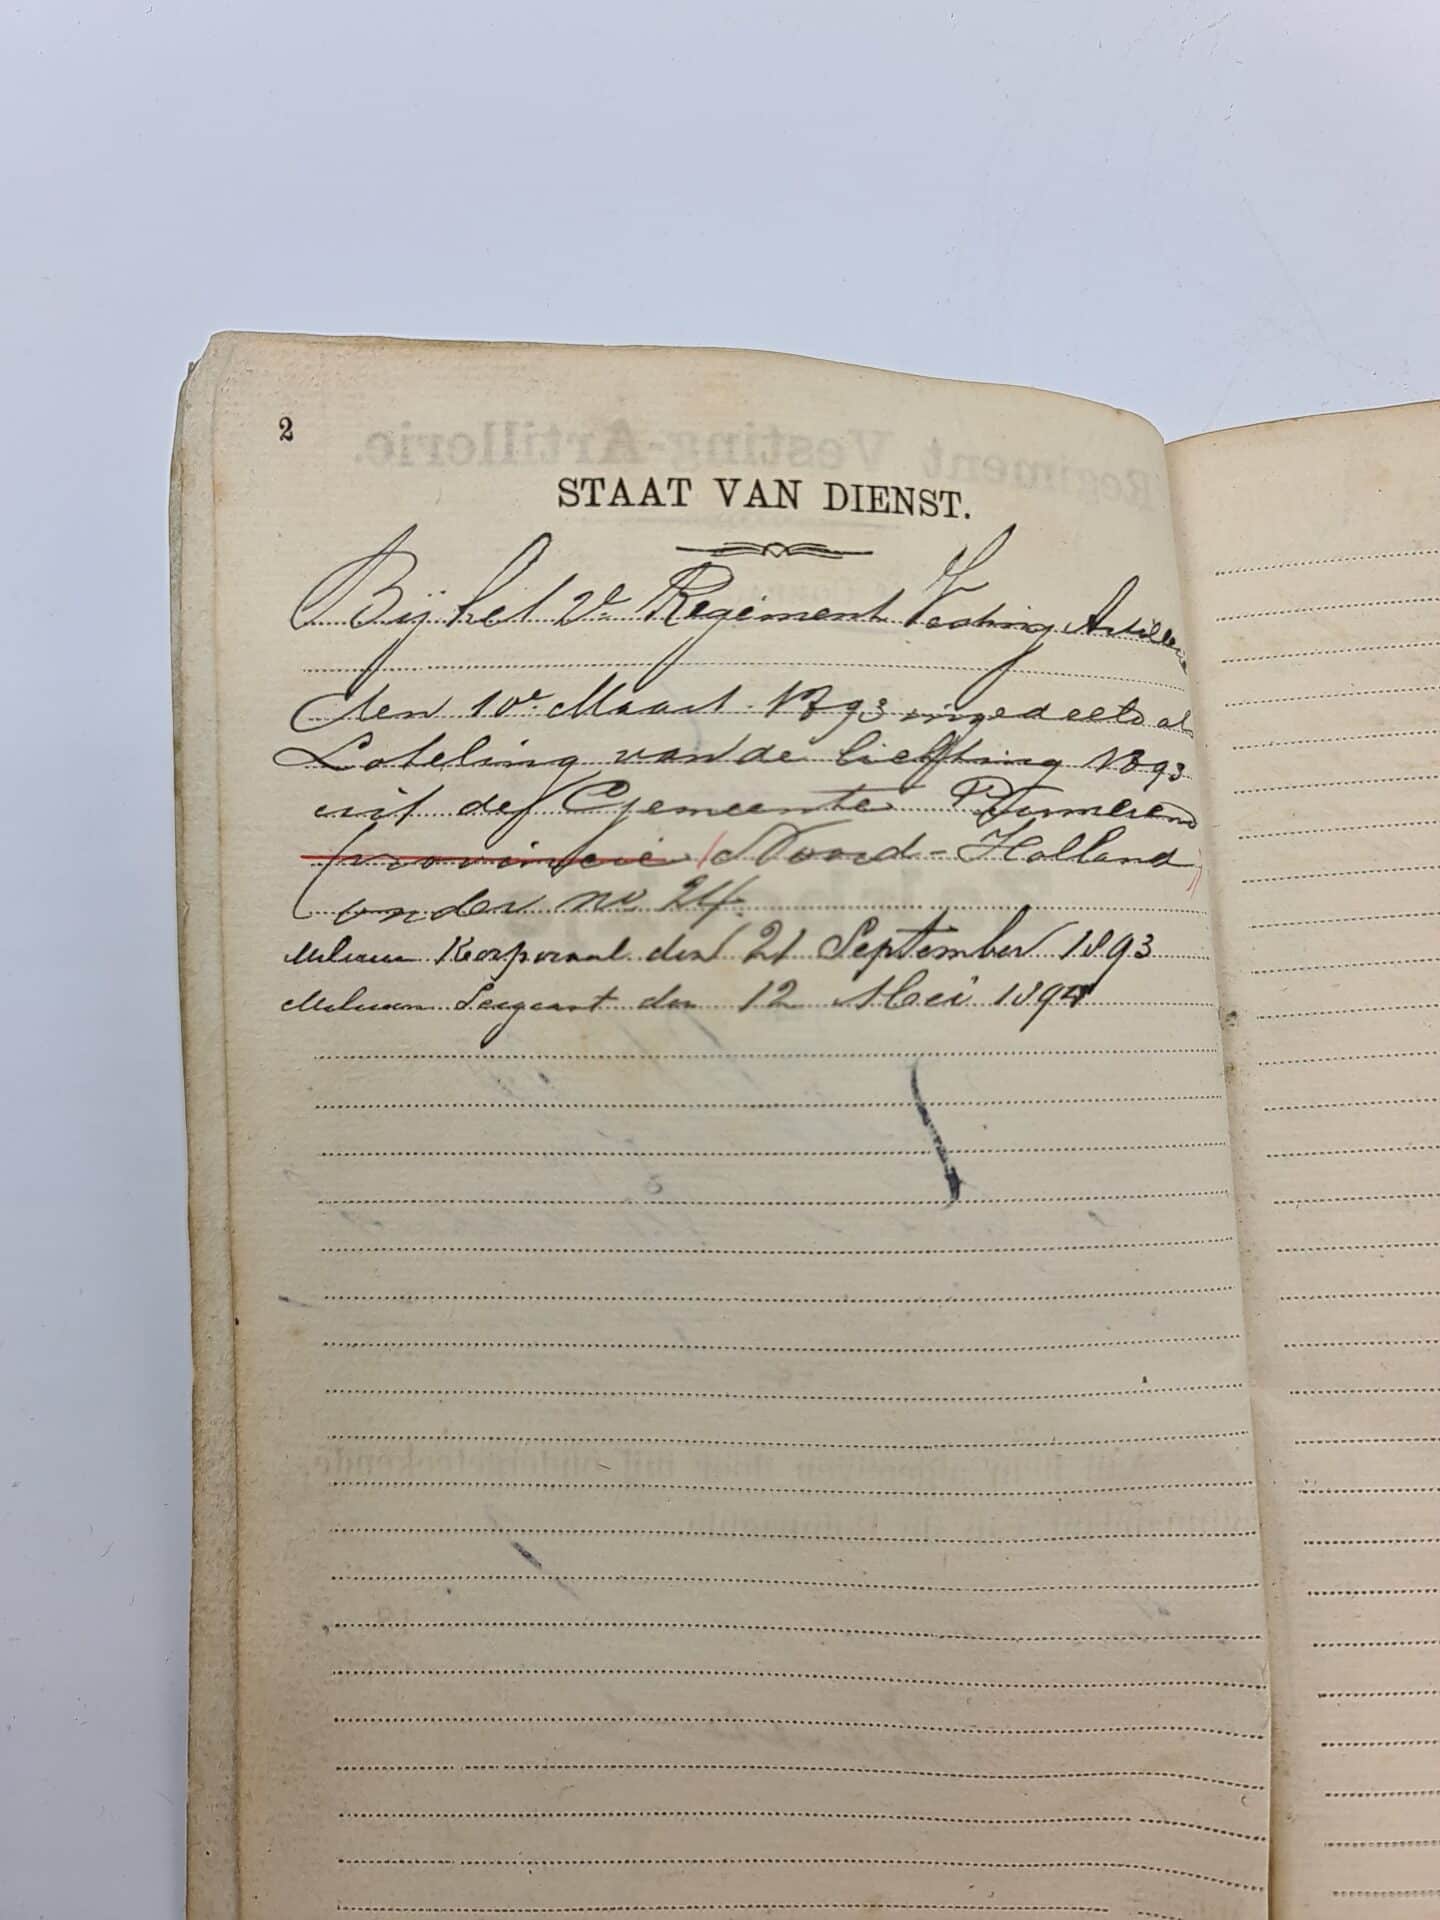 2
STAAT VAN DIENST.
Bij het 2e Regiment Vesting Artillerie
den 10e Maart 1893 ingedeeld als
Loteling van de lichting 1893
uit de Gemeente Purmerend
(provincie Noord-Holland
onder no 24.
Milicien Korporaal den 21 September 1893
Milicien Sergeant den 12 Mei 1894